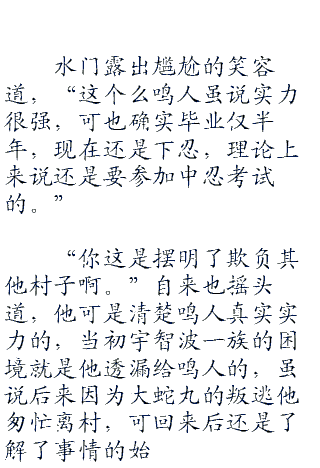 水门露出尴尬的笑容
道，“这个么鸣人虽说实力
很强，可也确实毕业仅半
年，现在还是下忍，理论上
来说还是要参加中忍考试
的。”
“你这是摆明了欺负其
他村子啊。”自来也摇头
道，他可是清楚鸣人真实实
力的，当初宇智波一族的困
境就是他透漏给鸣人的，虽
说后来因为大蛇丸的叛逃他
匆忙离村，可回来后还是了
解了事情的始